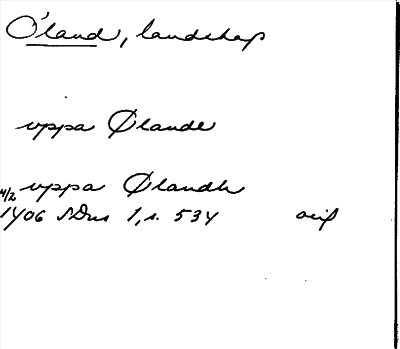 Öland, landskap
uppa Ølande
uppa Ølandh
4/2
1406 SDns 1, s. 534 orig